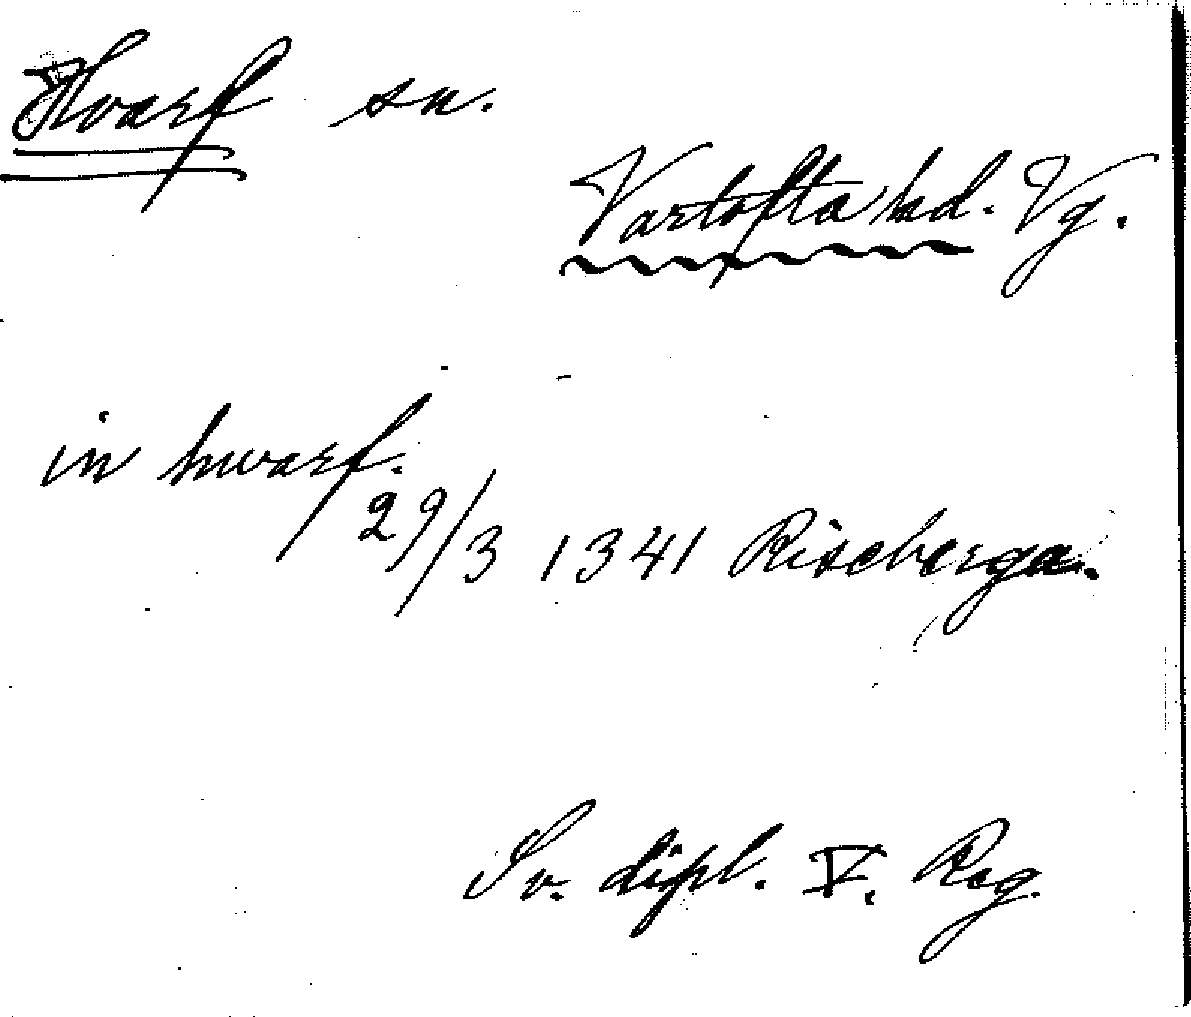 Hvarf sn.
Vartofta hd. Vg.
in huarf.
29/3 1341 Riseberga.
Sv. dipl. V. Reg.